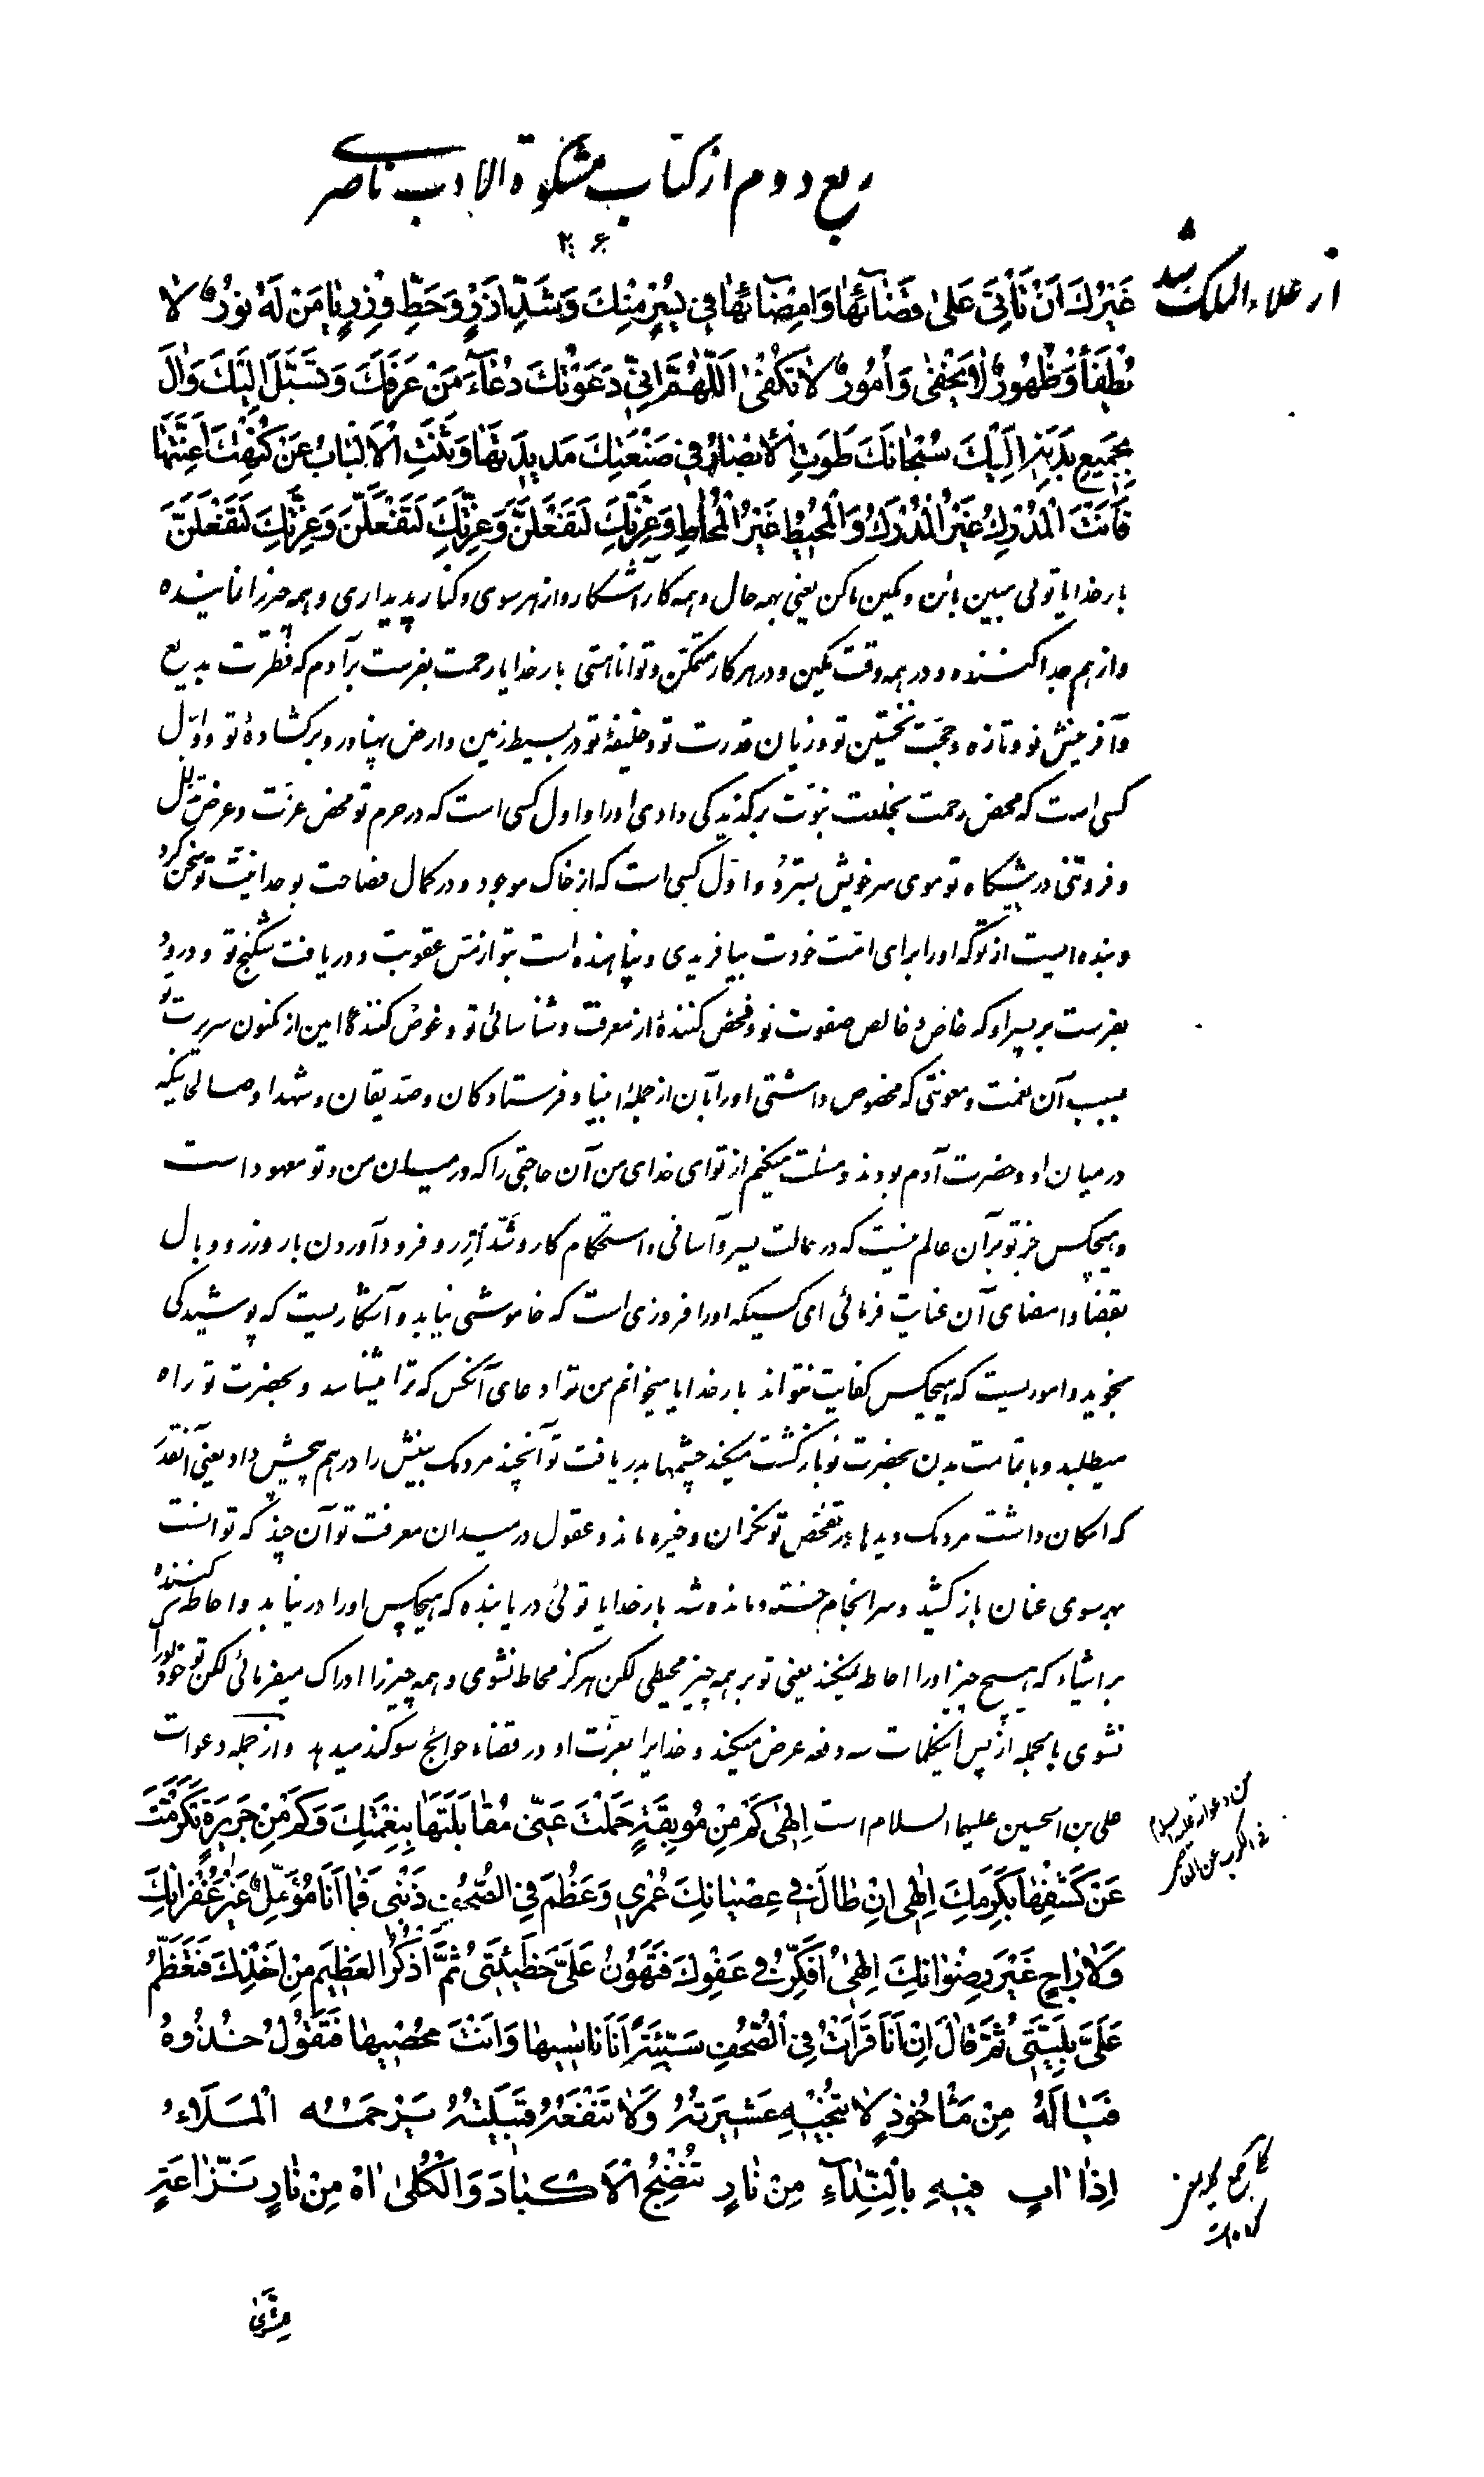 ربع دوم از کتاب مشکوة الادب ناصری
۲۰۶
غَیْرُكَ اَنْ تَأْتِیَ عَلیٰ قَضٰآئِهٰا وَ اِمْضٰآئِهٰا فی یُسْرٍ مِنْكَ وَ شَدِّ اَزْرٍ وَ حَطِّ وِزْرٍ یٰا مَنْ لَهُ نُورٌ لاٰ
یُطْفَأُ وَ ظُهُورٌ لاٰ یَخْفیٰ وَ اُمُورٌ لاٰ تُكْفیٰ اَللّٰهُمَّ اِنّی دَعَوْتُكَ دُعٰآءَ مَنْ عَرَفَكَ وَ تَسَبَّلَ اِلَیْكَ وَ اٰلَ
بِجَمیعِ بَدَنِهِ اِلَیْكَ سُبْحٰانَكَ طَوَتِ الْاَبْصٰارُ فی صَنْعَتِكَ مَدیدَتَهٰا وَ ثَنَتِ الْاَلْبٰابُ عَنْ كُنْهِكَ اَعِنَّتَهٰا
فَاَنْتَ الْمُدْرِكُ غَیْرُ الْمُدْرَكِ وَ الْمُحیطُ غَیْرُ الْمُحٰاطِ وَ عِزَّتِكَ لَتَفْعَلَنَّ وَ عِزَّتِكَ لَتَفْعَلَنَّ وَ عِزَّتِكَ لَتَفْعَلَنَّ
بار خدایا توئی مبین بائن و مکین ماکن یعنی بهمه حال و همه کار آشکار و از هر سوی و کنار پدیداری و همه چیز را نماینده
و از هم جدا کننده و در همه وقت مکین و در هر کار متمکن و توانا هستی بار خدایا رحمت بفرست بر آدم که فطرت بدیع
و آفرینش نو و تازه و حجت نخستین تو و زبان قدرت تو و خلیفهٔ تو در بسیط زمین و ارض پهناور و بر گشادهٔ تو و اوّل
کسی است که محض رحمت بخلعت نبوّت برگزیدگی دادی او را و اول کسی است که در حرم تو محض عزت و عرض تذلّل
و فروتنی در پیشگاه تو موی سر خویش بسترد و اوّل کسی است که از خاک موجود و در کمال فصاحت بوحدانیّت تو سخن کرد
و بنده ایست از تو که او را برای امّت خودت بیافریدی و پناهنده است بتو از مسّ عقوبت و دریافت شکنج تو و درود
بفرست بر پسر او که خاص و خالص صفوت تو و فحص کنندهٔ از معرفت و شناسائی تو و غوص کنندهٔ امین از مکنون سریرت تو
بسبب آن نعمت و معونتی که مخصوص داشتی او را بآن از جملهٔ انبیا و فرستادگان و صدّیقان و شهدا و صالحانیکه
در میان او و حضرت آدم بودند و مسئلت میکنم از تو ای خدای من آن حاجتی را که در میان من و تو معهود است
و هیچکس جز تو بر آن عالم نیست که در حالت یسر و آسانی و استحکام کار و شدّ ازر و فرود آوردن بار وزر و وبال
بقضا و امضای آن عنایت فرمائی ای کسیکه او را فروزی است که خاموشی نیابد و آشکاریست که پوشیدگی
نجوید و اموریست که هیچکس کفایت نتواند بار خدایا میخوانم من ترا دعای آنکس که ترا میشناسد و بحضرت تو راه
میطلبد و با تمامت بدن بحضرت تو بازگشت میکند چشمها بدریافت تو آنچند مردمک بینش را در هم پیچش داد یعنی آنقدر
که امکان داشت مردمک دیدها در تفحّص تو نگران و خیره ماند و عقول در میدان معرفت تو آن چند که توانست
بهر سوی عنان باز کشید و سرانجام خسته و مانده شد بار خدایا توئی دریابنده که هیچکس او را در نیابد و احاطه کننده
بر اشیاء که هیچ چیز او را احاطه نمیکند یعنی تو بر همه چیز محیطی لکن هرگز محاط نشوی و همه چیز را ادراک میفرمائی لکن تو خود مدرک
نشوی بالجمله از پس اینکلمات سه دفعه عرض میکند و خدایرا بعزّت او در قضاء حوائج سوگند میدهد و از جمله دعوات
علی بن الحسین علیهما السلام است اِلٰهی كَمْ مِنْ مُوبِقَةٍ حَمَلْتَ عَنّی مُقٰابَلَتَهٰا بِنِعْمَتِكَ وَ كَمْ مِنْ جَریرَةٍ تَكَرَّمْتَ
عَنْ كَشْفِهٰا بِكَرَمِكَ اِلٰهی اِنْ طٰالَ فی عِصْیٰانِكَ عُمْری وَ عَظُمَ فِی الصُّحُفِ ذَنْبی فَمٰا اَنَا مُؤَمِّلٌ غَیْرَ غُفْرٰانِكَ
وَ لاٰ رٰاجٍ غَیْرَ رِضْوٰانِكَ اِلٰهی اُفَكِّرُ فی عَفْوِكَ فَتَهُونُ عَلَیَّ خَطیئَتی ثُمَّ اَذْكُرُ الْعَظیمَ مِنْ اَخْذِكَ فَتَعْظُمُ
عَلَیَّ بَلِیَّتی ثُمَّ قٰالَ اِنْ اَنَا قَرَأْتُ فِی الصُّحُفِ سَیِّئَةً اَنَا نٰاسیهٰا وَ اَنْتَ مُحْصیهٰا فَتَقُولُ خُذُوهُ
فَیٰا لَهُ مِنْ مَأْخُوذٍ لاٰ تُنْجیهِ عَشیرَتُهُ وَ لاٰ تَنْفَعُهُ قَبیلَتُهُ یَرْحَمُهُ الْمَلَاءُ
اِذٰا اٰبَ فیهِ بِالنِّدٰآءِ مِنْ نٰارٍ تُنْضِجُ الْاَكْبٰادَ وَ الْكُلیٰ اٰهْ مِنْ نٰارٍ نَزّٰاعَةٍ
از علاء الملک شد
من دعواته علیه السلام